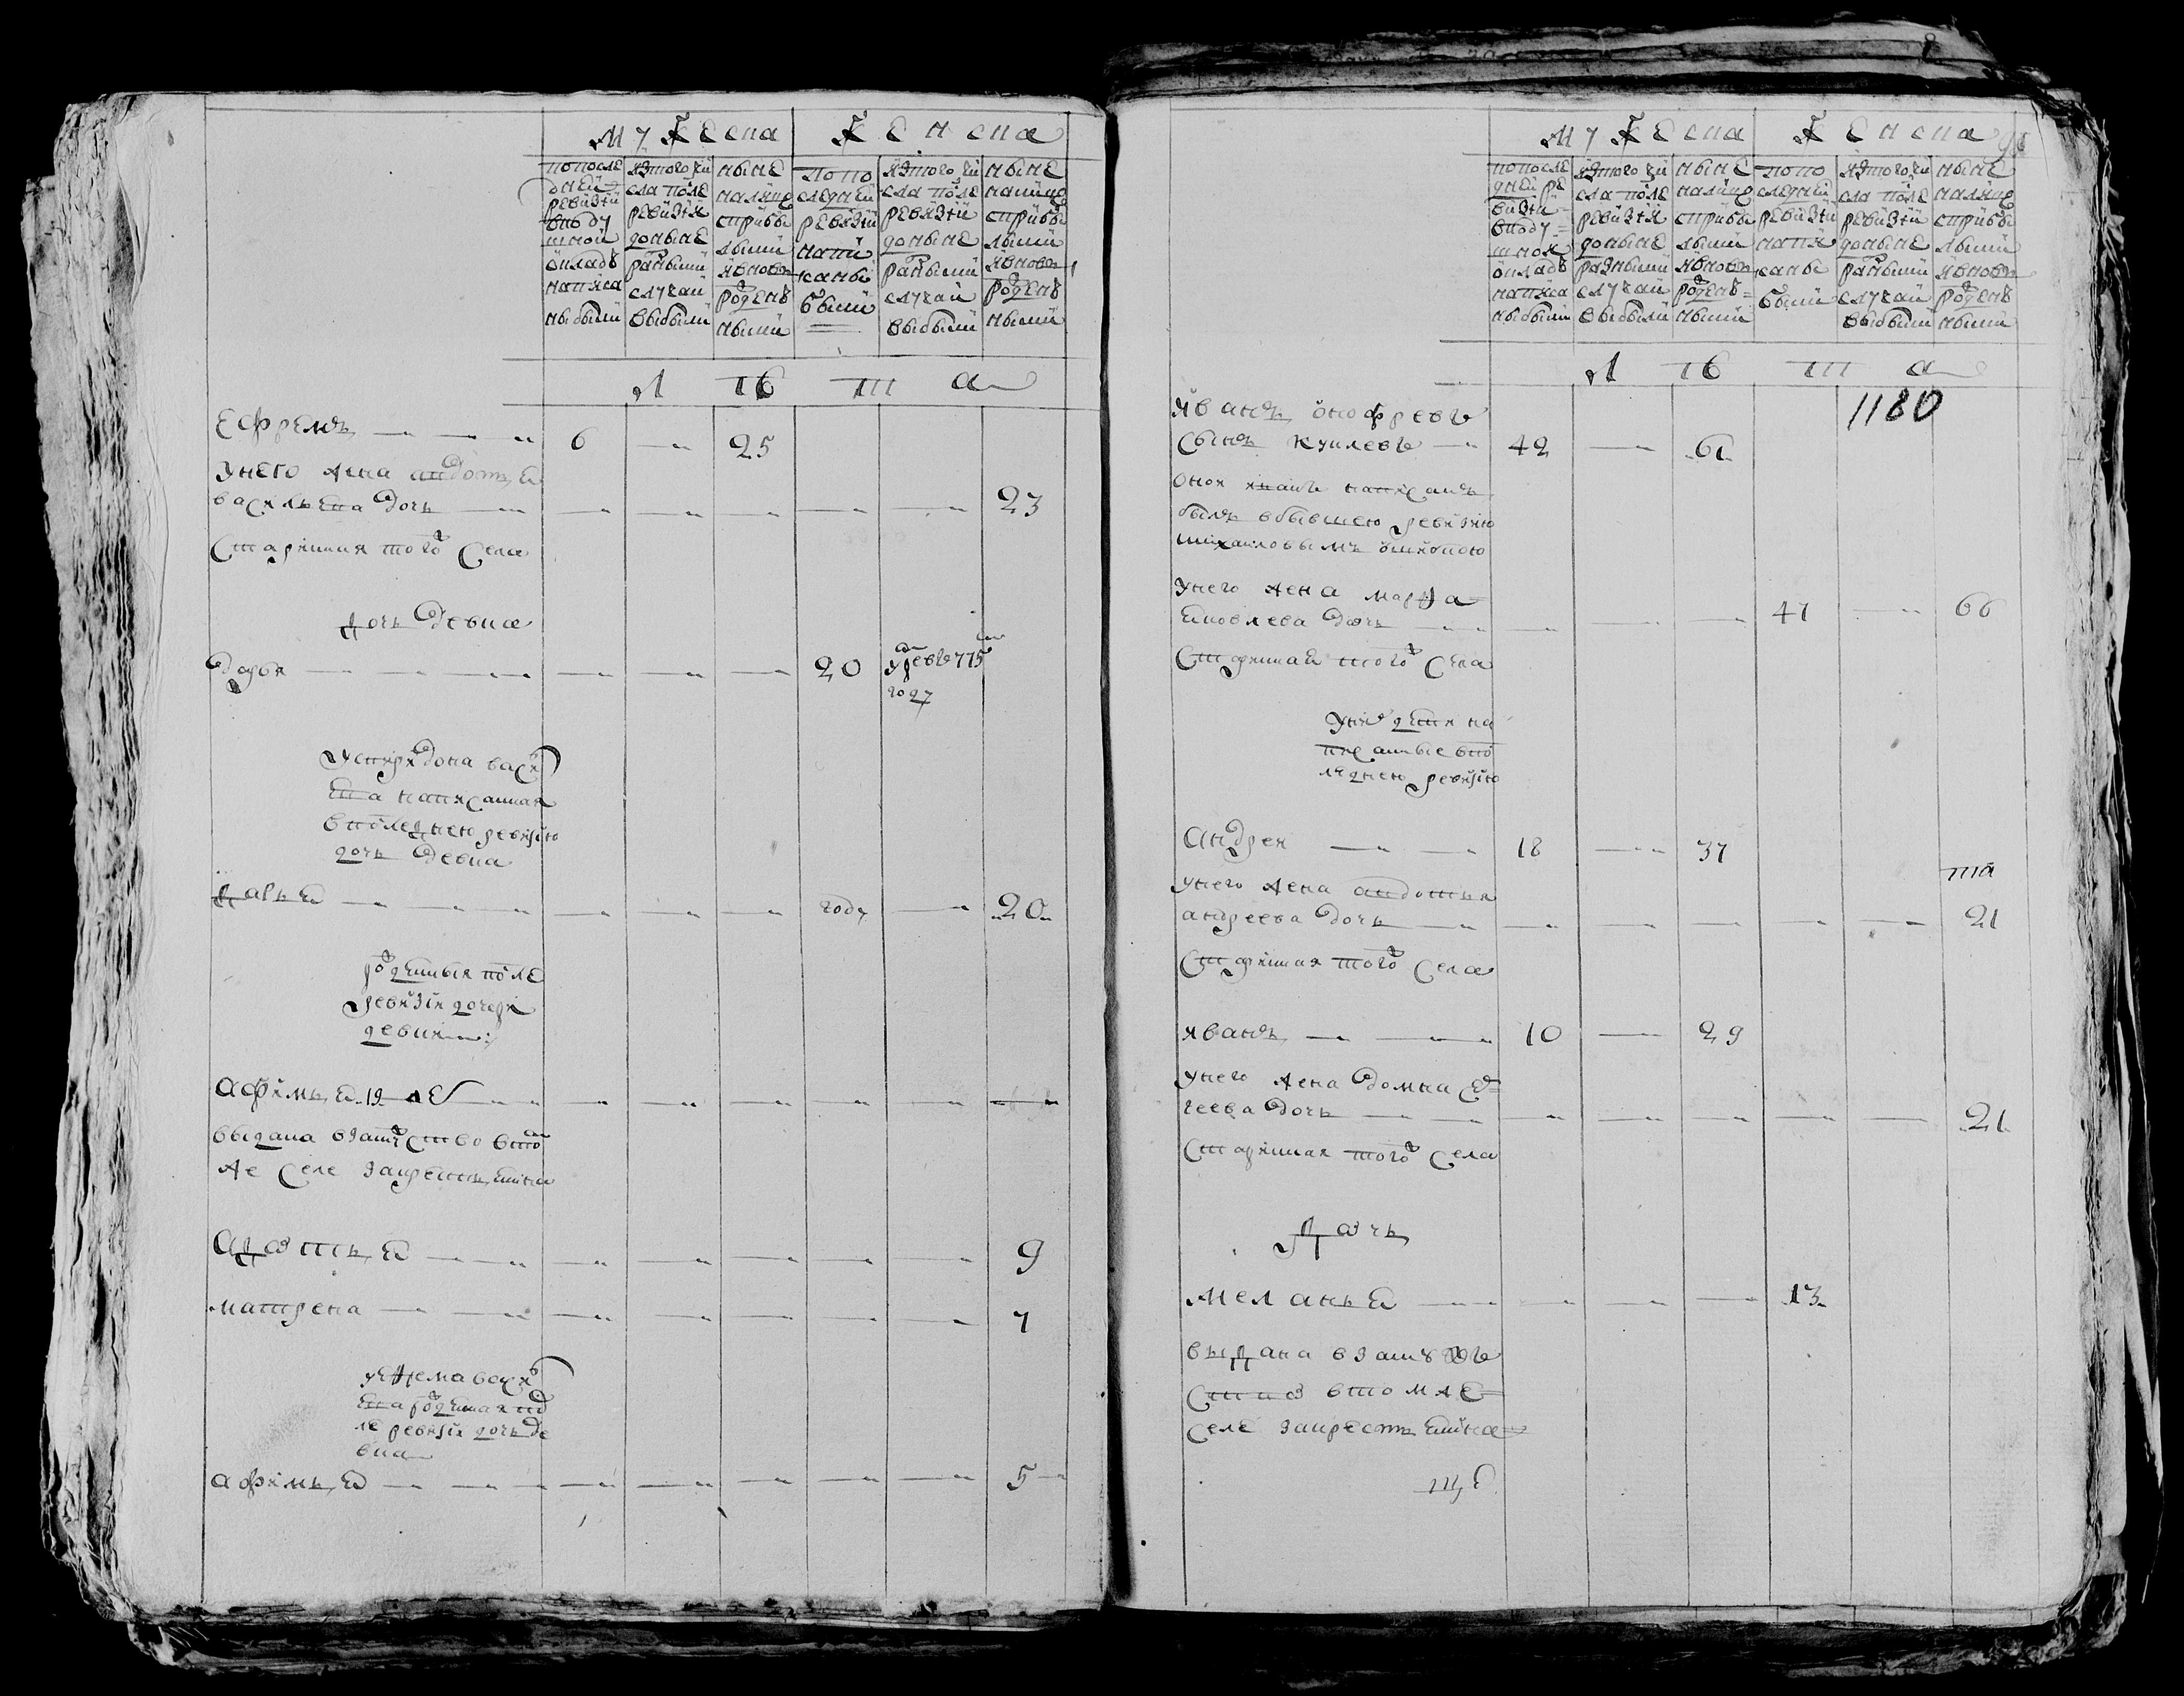 Мужеска Женска
попосле
днеи
ревизии
вподу
шнои
окладъ
написа
ныбыли
изтого чи
сла после
ревизии
доныне
разными
случаи
выбыли
ныне
налицо
сприбы
лыми
ивновь
рожденъ
ными
попо
следнеи
ревизии
напи
саны
были
изтого чи
сла после
ревизии
доныне
разными
случаи
выбыли
ныне
налицо
сприбы
лыми
ивновь
рожденъ
ными
Л ѣ т а
Ефремъ 6 25
унего жена авдотья
васильева дочь 23
Старинная тогож села
дочь девка
дарья 20 умре въ 775
году
успиридона васи
ева написанная
впоследнею ревизию
дочь девка
дарья году 20
рожденныя после
ревизии дочери
девки
афимья 19 лет
выдана взамужство втом
же селе закрестьянина
авдотья 9
матрена 7
уефрема васил
ева рожденная пос
ле ревизии дочь де
вка
афимья 5
Мужеска Женска
попосле
днеи ре
визии
вподу
шнои
окладъ
написа
ныбыли
изтого чи
сла после
ревизии
доныне
разными
случаи
выбыли
ныне
налицо
сприбы
лыми
ивновь
рожденъ
ными
попо
следнеи
ревизии
написаны
были
изтого чи
сла после
ревизии
доныне
разными
случаи
выбыли
ныне
налицо
сприбы
лыми
ивновь
рожденъ
ными
Л ѣ т а
1180
Иванъ онофревъ
сынъ 42 61
онои иванъ написанъ
былъ вбывшею ревизию
михаиловымъ
унего жена марфа
яковлева дочь 47 66
Старинная тогож села
уних дети на
писанные впо
следнею ревизию
андреи 18 37
унего жена авдотья
андреева дочь 21
Старинная тогож села
иванъ 10 29
унего жена домна Сер
геева дочь 21
Старинная тогож села
Дочь
меланья 13
выдана взамуже
ство втомже
селе закрестьянина